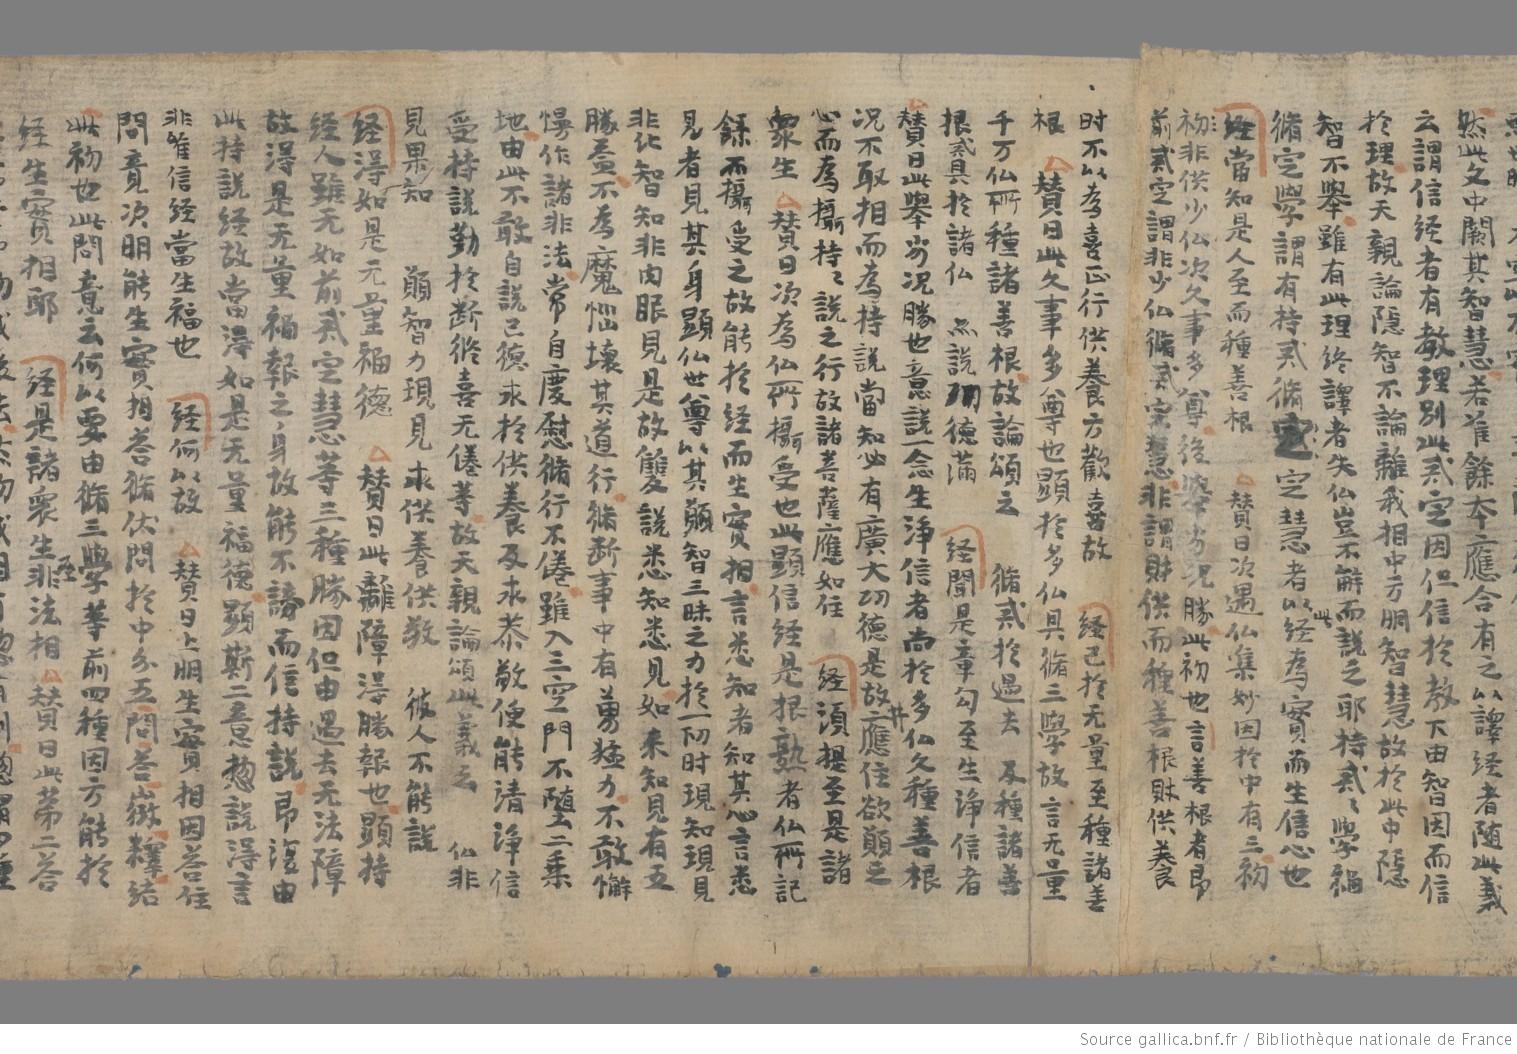 然此文中闕其智慧若准餘本應合有之以譯經者随此義
云謂信經者有教理別此貳空因但信於教下由智因而信
於理故天親論隱智不論離我相中方明智慧故於此中隱
智不舉雖有此理終譯者失仏豈不解而說之耶持貳〻學福
脩定學謂有持貳脩定定慧者以經為實而生信心也
經當知是人至而種善根 賛曰次遇仏集妙因於中有三初
初非供少仏次久事多尊後舉劣況勝此初也言善根者即
前貳定謂非少仏脩貳定慧非謂財供而種善根財供養
時不以為喜正行供養方歡喜故 經已於无量至種諸善
根 賛曰此久事多尊也顯於多仏具脩三學故言无量
千万仏所種諸善根故論頌云 脩貳於過去 及種諸善
根 貳具於諸仏 亦說功德滿 經聞是章勾至生淨信者
賛曰此舉劣況勝也意說一念生淨信者尚於多仏久種善根
況不取相而為持說當知必有廣大功德是故應住欲願之
心而為攝持〻說之行故諸菩薩應如住 經須提至是諸
衆生 賛曰次為仏所攝受也此顯信經是根熟者仏所記
餘而攝受之故能於經而生實相言悉知者知其心言悉
見者見其身顯仏世尊以其願智三昧之力於一切時現知現見
非比智知非肉眼見是故雙說悉知悉見如来知見有五
勝益不為魔惱壞其道行脩断事中有勇猛力不敢懈
慢作諸非法常自慶慰脩行不倦雖入三空門不墮二乘
地由此不敢自說己德求於供養及求恭敬便能清淨信
受持說勤於断脩喜无倦等故天親論頌此義云 仏非
見果知 願智力現見 求供養供敬 彼人不能說
經淂如是元量福德 賛曰此離障淂勝報也顯持
經人雖无如前貳定慧等三種勝因但由過去无法障
故淂是无量福報之身故能不謗而信持說即複由
此持說經故當淂如是无量福德顯斯二意揔說淂言
非唯信經當生福也 經何以故 賛曰上明生實相因荅住
問竟次明能生實相荅脩伏問於中分五問荅徵釋結
此初也此問意云何以要由脩三學等前四種因方能於
經生實相耶 經是諸衆生非法相 賛曰此第二荅